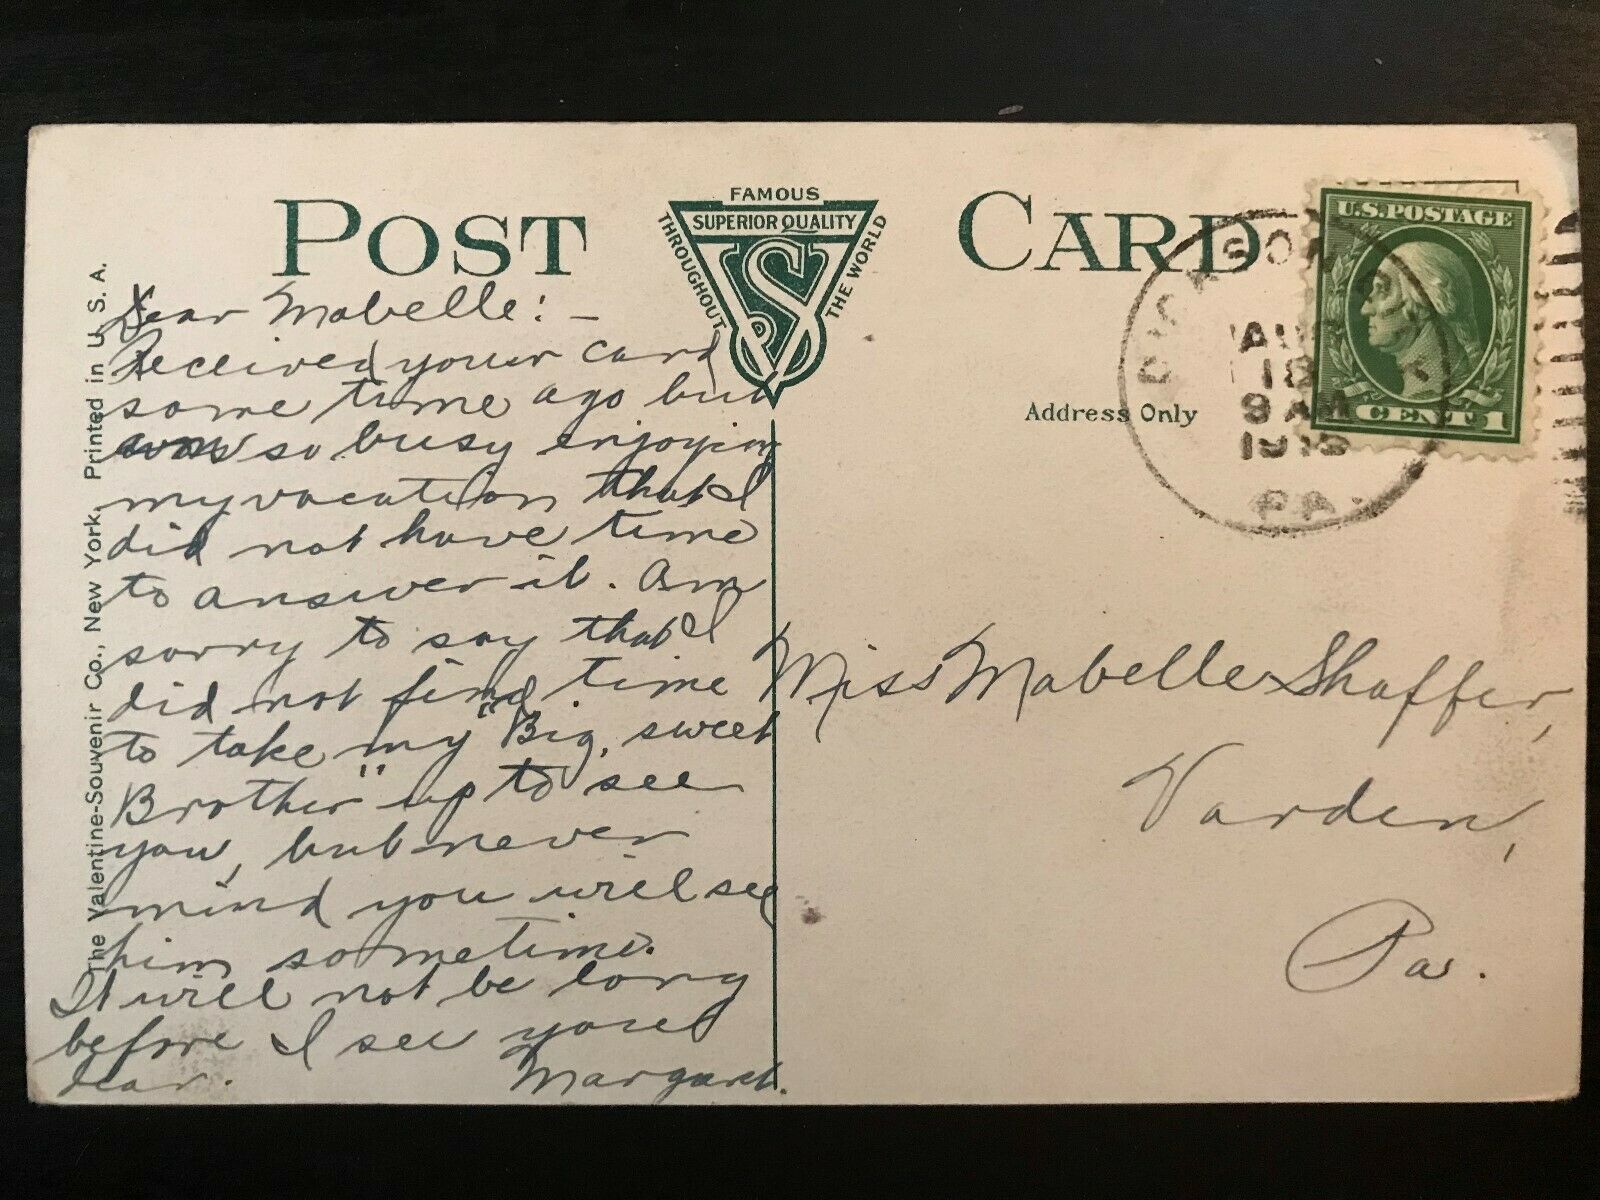 POST CARD
FAMOUS
SUPERIOR QUALITY
THROUGHOUT
THE WORLD
VS
Address Only
U.S. POSTAGE
CENT 1
DICKSON CITY
AUG
18
9 AM
PA.
The Valentine-Souvenir Co., New York. Printed in U. S. A.
Dear Mabelle: –
Received your card
some time ago but
was so busy enjoying
my vacation that I
did not have time
to answer it. Am
sorry to say that I
did not find time
to take my "Big, sweet
Brother" up to see
you, but never
mind you will see
him sometime.
It will not be long
before I see you
dear. Margaret.
Miss Mabelle Shaffer,
Varden,
Pa.